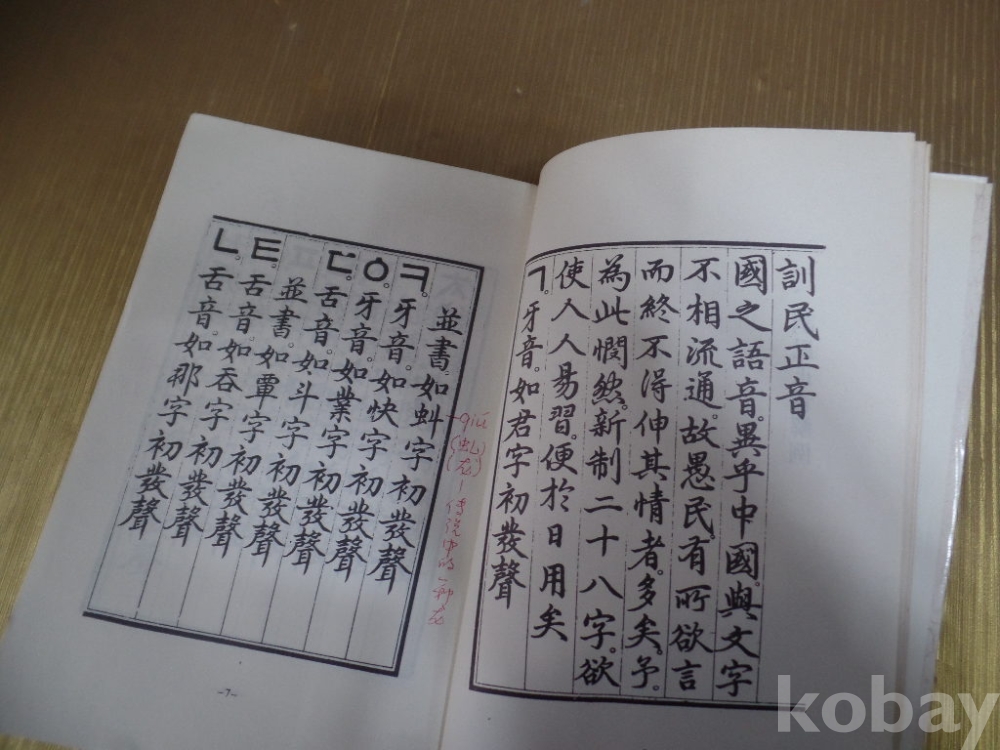 訓民正音
國之語音。異乎中國。與文字
不相流通。故愚民。有所欲言
而終不得伸其情者。多矣。予。
為此憫然。新制二十八字。欲
使人人易習。便於日用矣
ㄱ。牙音。如君字初發聲
並書。如虯字初發聲
ㅋ。牙音。如快字初發聲
ㆁ。牙音。如業字初發聲
ㄷ。舌音。如斗字初發聲
並書。如覃字初發聲
ㅌ。舌音。如呑字初發聲
ㄴ。舌音。如那字初發聲
qiú
(虬)
-7-
kobay